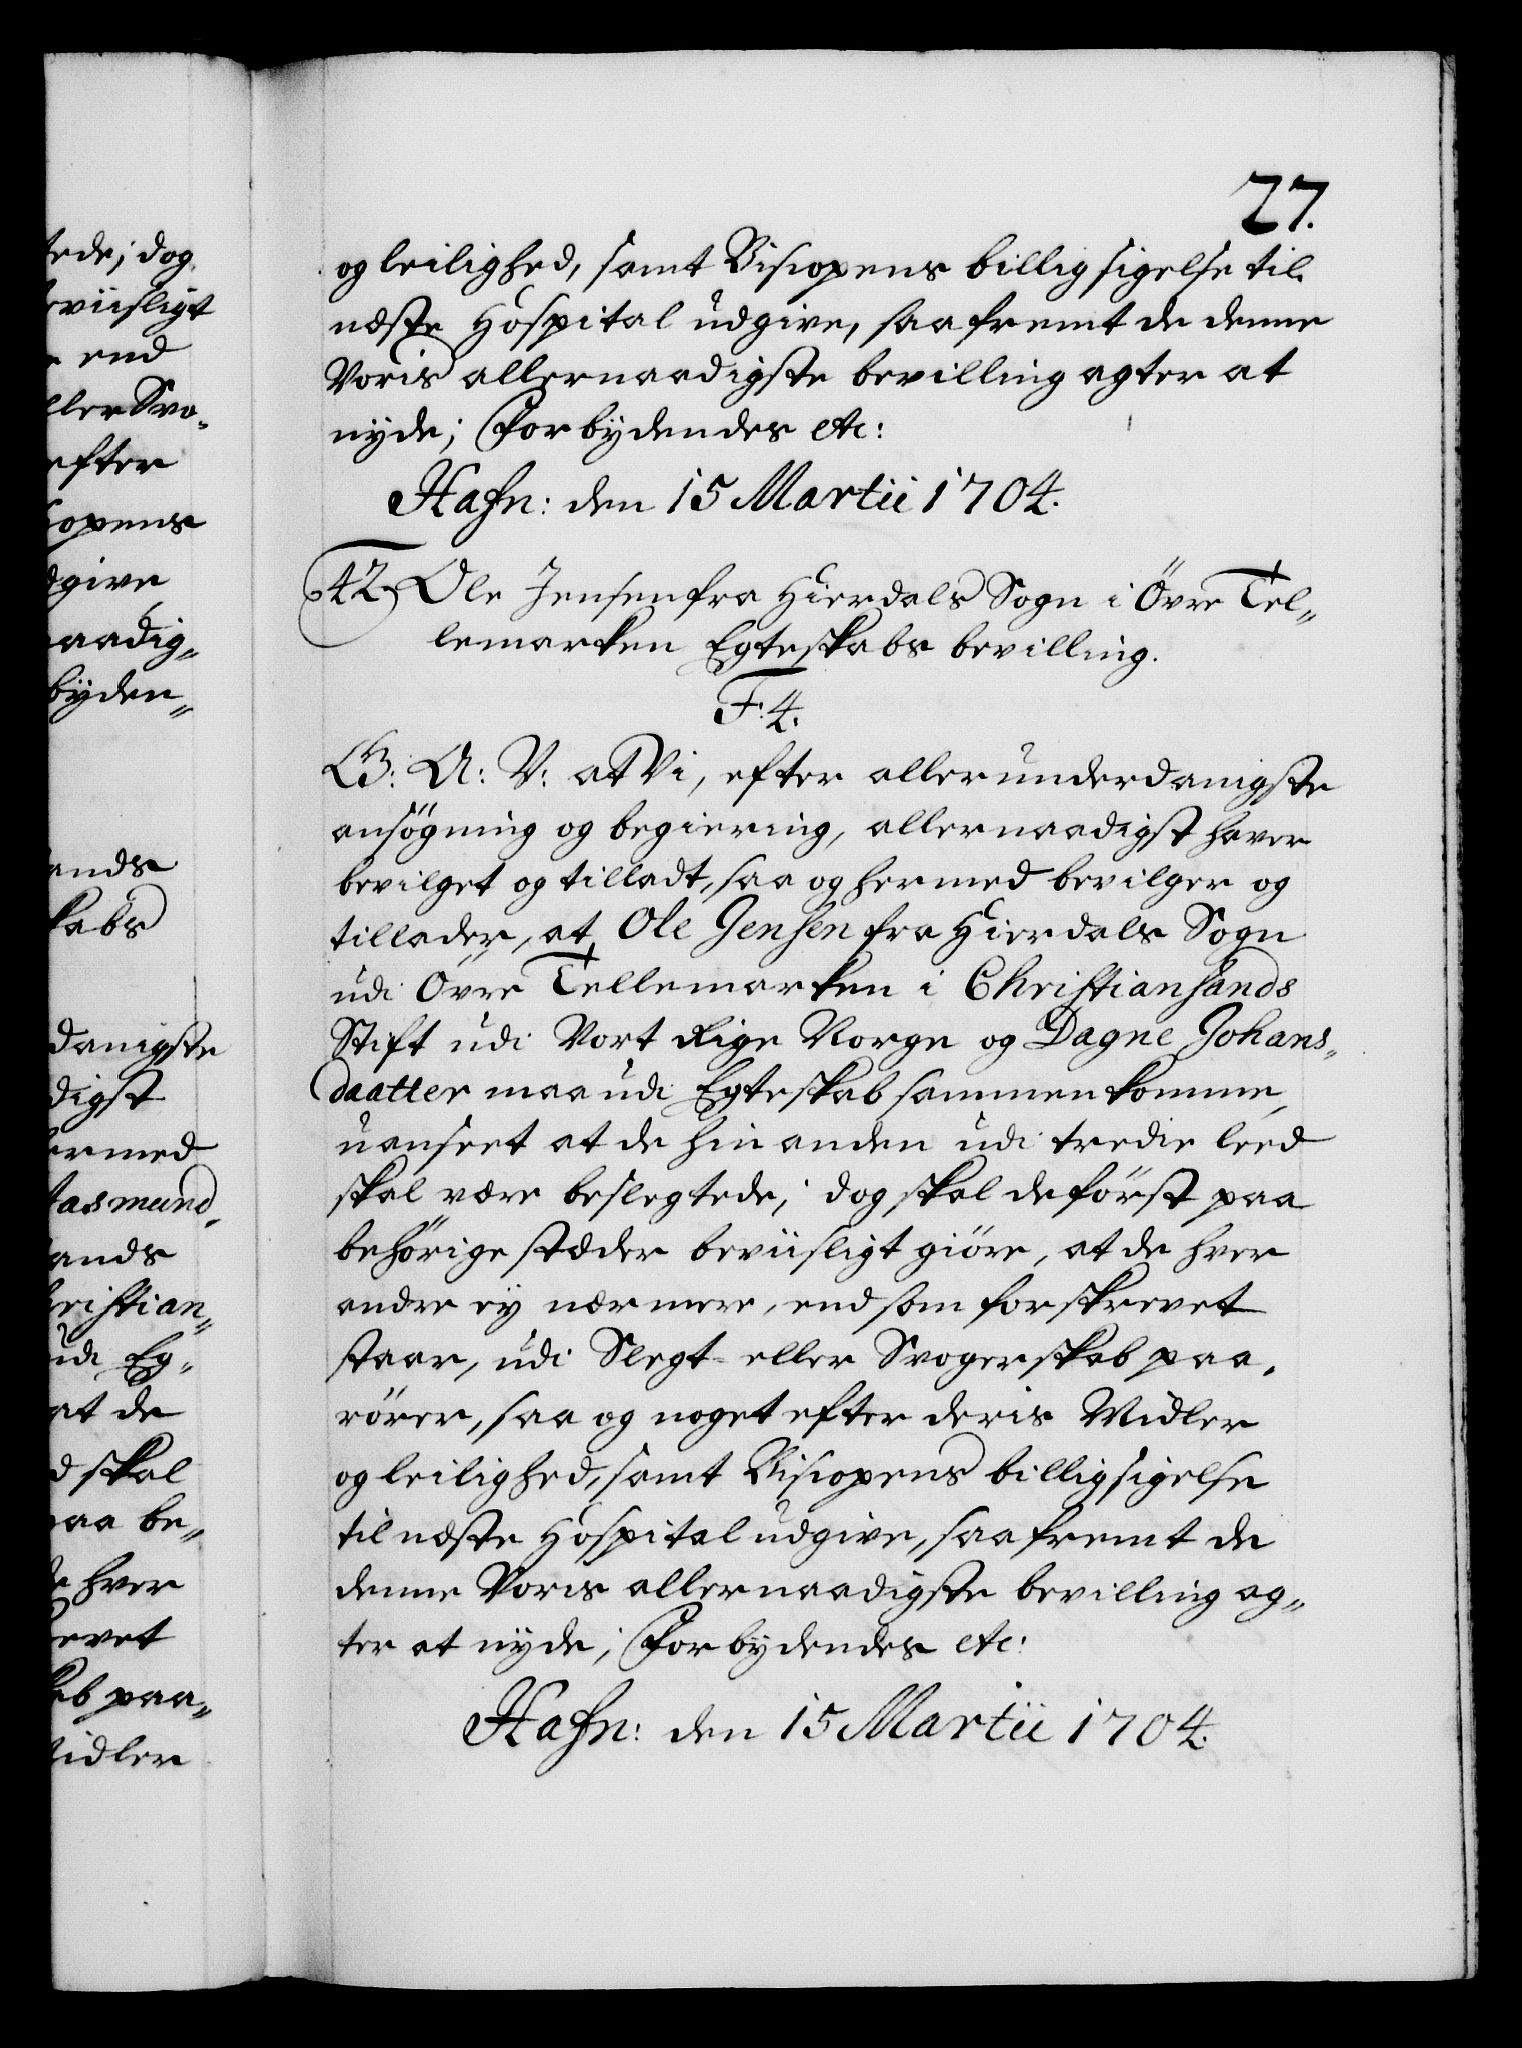 tede; dog
eviisligt
e end
ller Svo„
efter
opens
dgive
aadig„
byden„
ands
kabs
danigste
digst
ermed
asmund„
ands
hristian„
udi Eg„
at de
d skal
paa be„
de hver
evet
kab paa„
idler
27.
og leilighed, samt Biscopens billigsigelse til
næste Hospital udgive, saa fremt de denne
Voris allernaadigste bevilling agter at
nyde; Forbydendes etc:
Hafn: den 15 Martii 1704.
42. Ole Jensen fra Hierdals Sogn i Övre Tel„
lemarken Egteskabs bevilling.
F: 4.
G: A: V: at Vi, efter allerunderdanigste
ansögning og begiering, allernaadigst haver
bevilget og tilladt, saa og hermed bevilger og
tillader, at Ole Jensen fra Hierdals Sogn
udi Övre Tellemarken i Christiansands
Stift udi Vort Rige Norge og Dagne Johans„
daatter maa udi Egteskab sammenkomme,
uanseet at de hinanden udi tredie leed
skal være beslegtede; dog skal de först paa
behörige stæder beviisligt giöre, at de hver
andre ey nærmere, end som forskrevet
staar, udi Slegt- eller Svogerskab paa„
rörer, saa og noget efter deris Midler
og leilighed, samt Biscopens billigsigelse
til næste Hospital udgive, saafremt de
denne Voris allernaadigste bevilling ag„
ter at nyde; Forbydendes etc:
Hafn: den 15 Martii 1704.